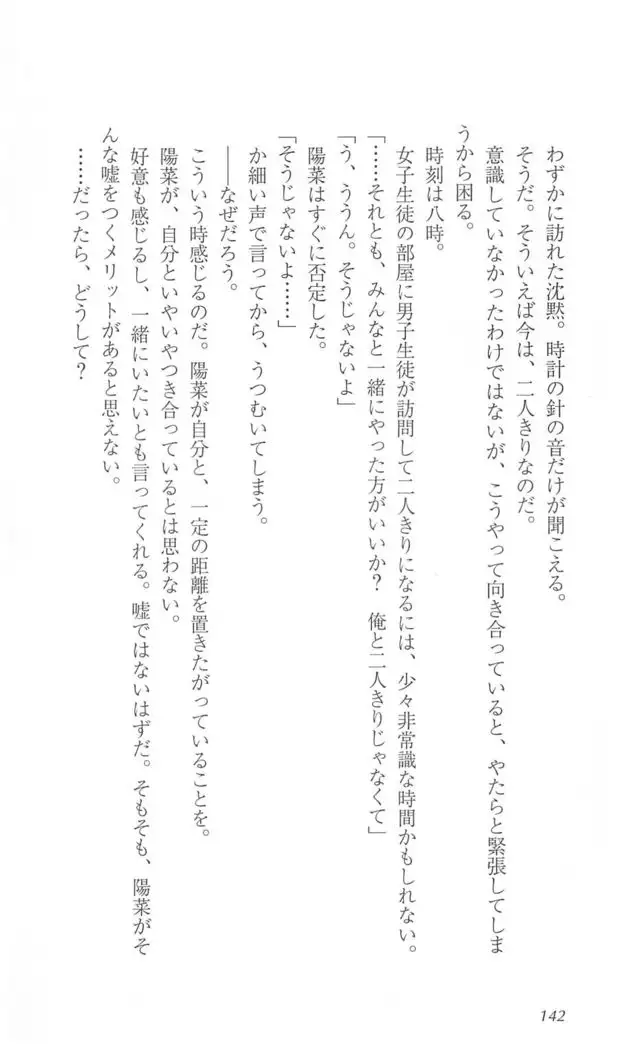 わずかに訪れた沈黙。時計の針の音だけが聞こえる。
そうだ。そういえば今は、二人きりなのだ。
意識していなかったわけではないが、こうやって向き合っていると、やたらと緊張してしま
うから困る。
時刻は八時。
女子生徒の部屋に男子生徒が訪問して二人きりになるには、少々非常識な時間かもしれない。
「……それとも、みんなと一緒にやった方がいいか？　俺と二人きりじゃなくて」
「う、ううん。そうじゃないよ」
陽菜はすぐに否定した。
「そうじゃないよ……」
か細い声で言ってから、うつむいてしまう。
――なぜだろう。
こういう時感じるのだ。陽菜が自分と、一定の距離を置きたがっていることを。
陽菜が、自分といやいやつき合っているとは思わない。
好意も感じるし、一緒にいたいとも言ってくれる。嘘ではないはずだ。そもそも、陽菜がそ
んな嘘をつくメリットがあると思えない。
……だったら、どうして？
142